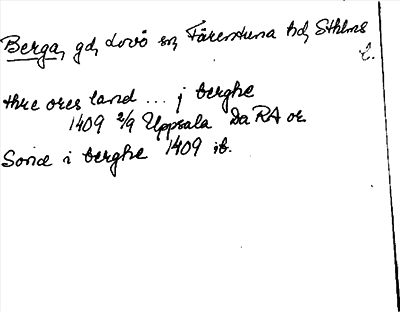 Berga, gd, Lovö sn, Färentuna hd, Sthlms
l.
thre ores land ... j berghe
1409 2/9 Uppsala DaRA or.
Sone i berghe 1409 ib.